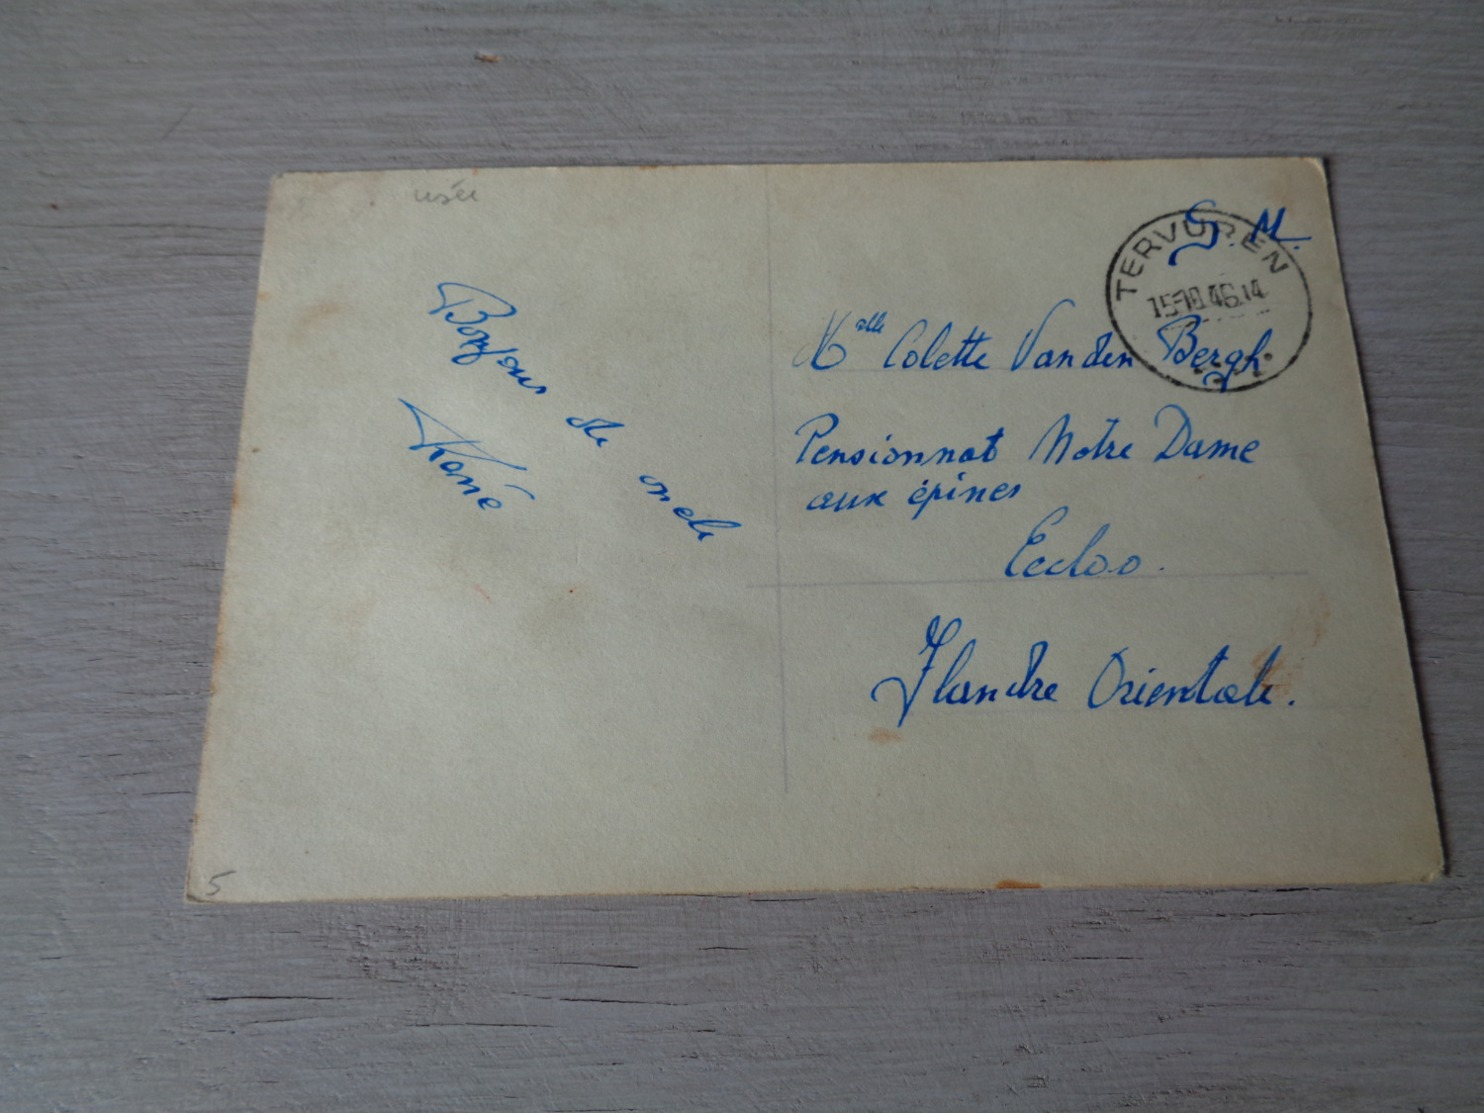 usée
Bonjour de oncle
René
S.M.
TERVUREN
15-10.46.14
Melle Colette Vanden Bergh.
Pensionnat Notre Dame
aux épines
Eecloo.
Flandre Orientale.
5